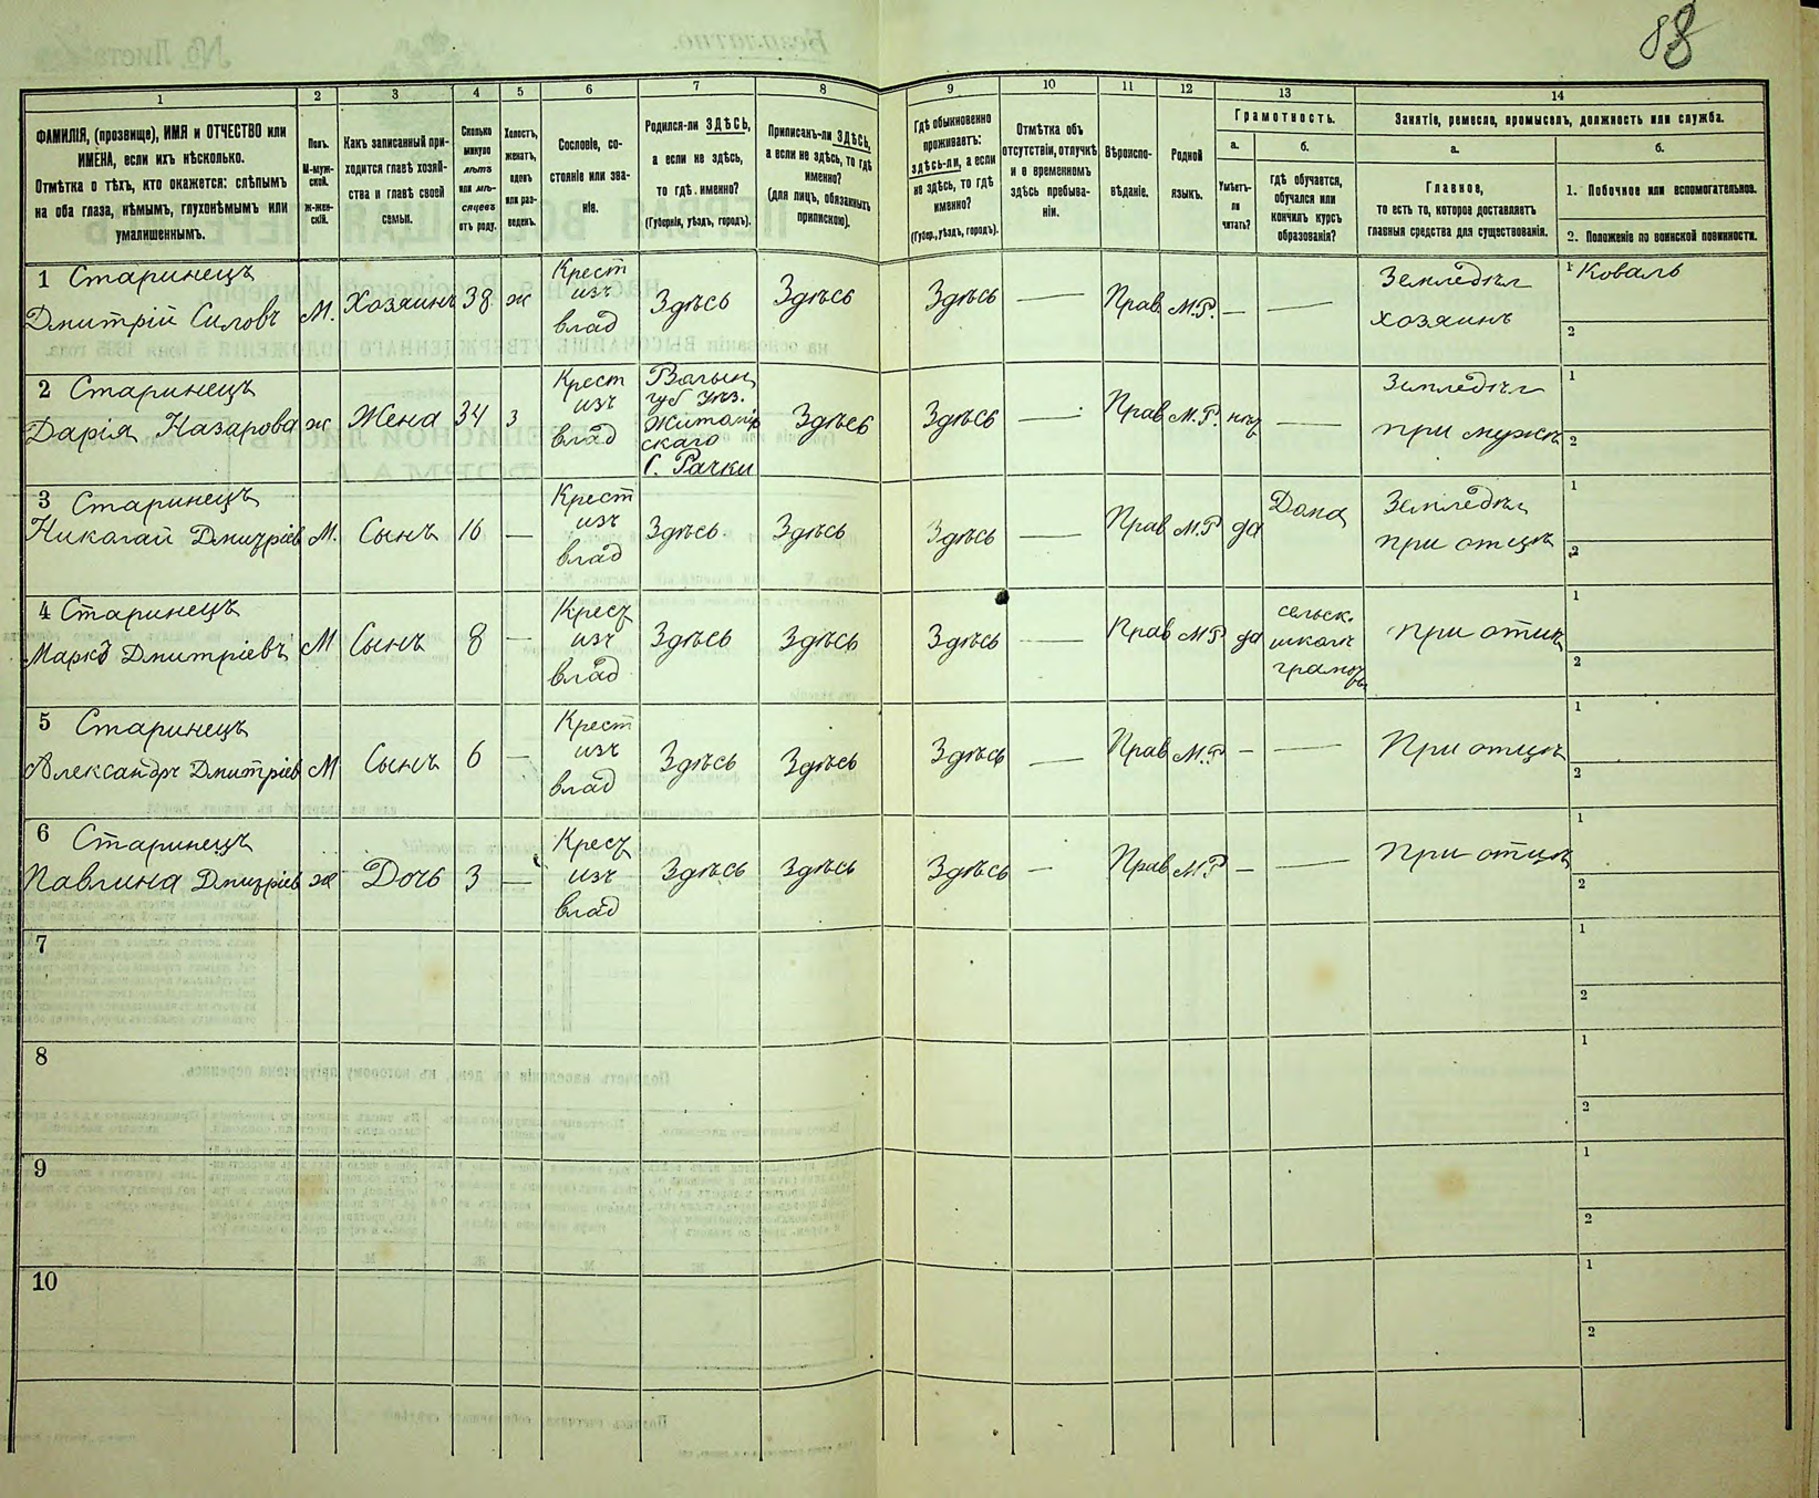 88
Безплатно.
№ Листа
1 2 3 4 5 6 7 8 9 10 11 12 13 14
ФАМИЛІЯ, (прозвище), ИМЯ и ОТЧЕСТВО или
ИМЕНА, если ихъ нѣсколько.
Отмѣтка о тѣхъ, кто окажется: слѣпымъ
на оба глаза, нѣмымъ, глухонѣмымъ или
умалишеннымъ.
Полъ.
М-муж-
ской.
Ж-жен-
скій.
Какъ записанный при-
ходится главѣ хозяй-
ства и главѣ своей
семьи.
Сколько
минуло
лѣтъ
или мѣ-
сяцевъ
отъ роду.
Холостъ,
женатъ,
вдовъ
или раз-
веденъ.
Сословіе, со-
стояніе или зва-
ніе.
Родился-ли ЗДѢСЬ,
а если не здѣсь,
то гдѣ именно?
(Губернія, уѣздъ, городъ).
Приписанъ-ли ЗДѢСЬ,
а если не здѣсь, то гдѣ
именно?
(для лицъ, обязанныхъ
припискою).
Гдѣ обыкновенно
проживаетъ:
здѣсь-ли, а если
не здѣсь, то гдѣ
именно?
(Губер., уѣздъ, городъ).
Отмѣтка объ
отсутствіи, отлучкѣ
и о временномъ
здѣсь пребыва-
ніи.
Вѣроиспо-
вѣданіе.
Родной
языкъ.
Грамотность.
а.
Умѣетъ-
ли
читать?
б.
гдѣ обучается,
обучался или
кончилъ курсъ
образованія?
Занятіе, ремесло, промыселъ, должность или служба.
а.
Главное,
то есть то, которое доставляетъ
главныя средства для существованія.
б.
1. Побочное или вспомогательное.
2. Положеніе по воинской повинности.
1 Старинецъ
Дмитрій Силовъ
М.
Хозяинъ
38
ж
Крест
изъ
влад
Здѣсь
Здѣсь
Здѣсь
—
Прав
М.Р.
—
—
Земледѣл
хозяинъ
1 Коваль
2
2 Старинецъ
Дарія Назарова
ж
Жена
34
з
Крест
изъ
влад
Волын
губ уѣз.
Житомір
скаго
С. Рачки
Здѣсь
Здѣсь
—
Прав
М.Р.
нѣт
—
Земледѣл
при мужѣ
1
2
3 Старинецъ
Николай Дмитріев
М.
Сынъ
16
—
Крест
изъ
влад
Здѣсь
Здѣсь
Здѣсь
—
Прав
М.Р
да
Дома
Земледѣл
при отцѣ
1
2
4 Старинецъ
Марко Дмитріевъ
М
Сынъ
8
—
Крест
изъ
влад
Здѣсь
Здѣсь
Здѣсь
—
Прав
М.Р
да
сельск.
школѣ
грамоты
при отцѣ
1
2
5 Старинецъ
Александръ Дмитріев
М
Сынъ
6
—
Крест
изъ
влад
Здѣсь
Здѣсь
Здѣсь
—
Прав
М.Р
—
—
При отцѣ
1
2
6 Старинецъ
Павлина Дмитріев
ж
Дочь
3
—
Крест
изъ
влад
Здѣсь
Здѣсь
Здѣсь
—
Прав
М.Р
—
—
При отцѣ
1
2
7
1
2
8
1
2
9
1
2
10
1
2